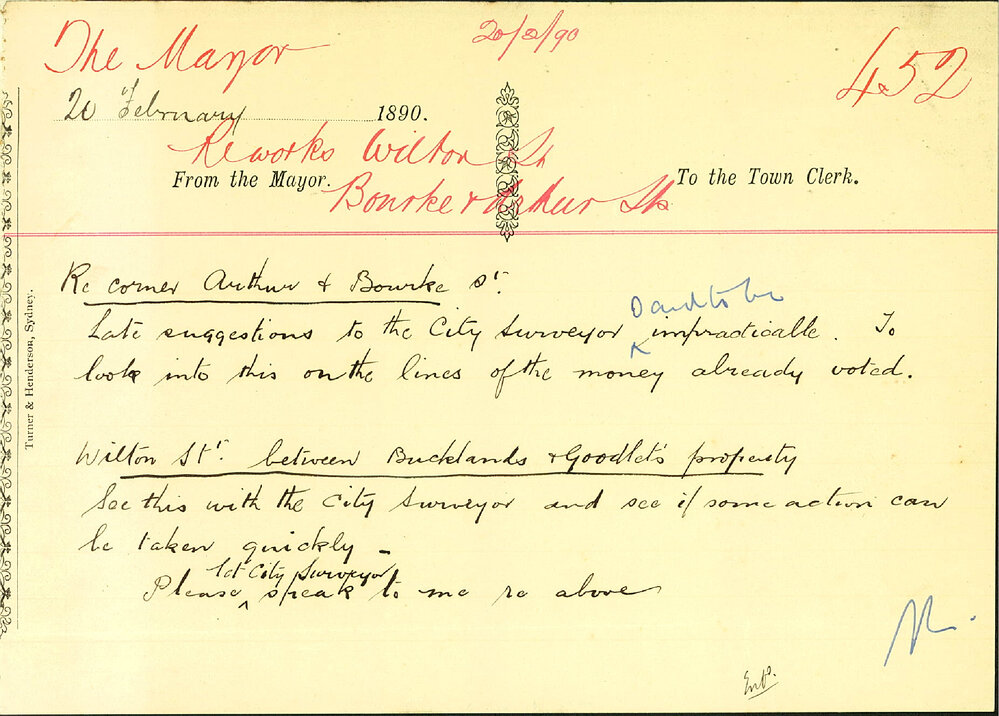 The Mayor
20/2/90
452
20 February 1890.
Re works Wilton St
From the Mayor.
To the Town Clerk.
Bourke & Arthur Sts
Re corner Arthur & Bourke St.
Late suggestions to the City Surveyor said to be impracticable. To
look into this on the lines of the money already voted.
Wilton St. between Bucklands & Goodlet's property
See this with the City Surveyor and see if some action can
be taken quickly –
Please let City Surveyor speak to me re above
Turner & Henderson, Sydney.